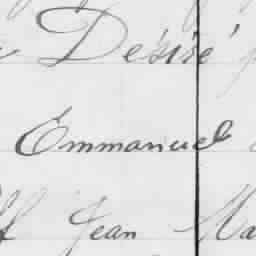 Désiré
Emmanuel
Jean Ma